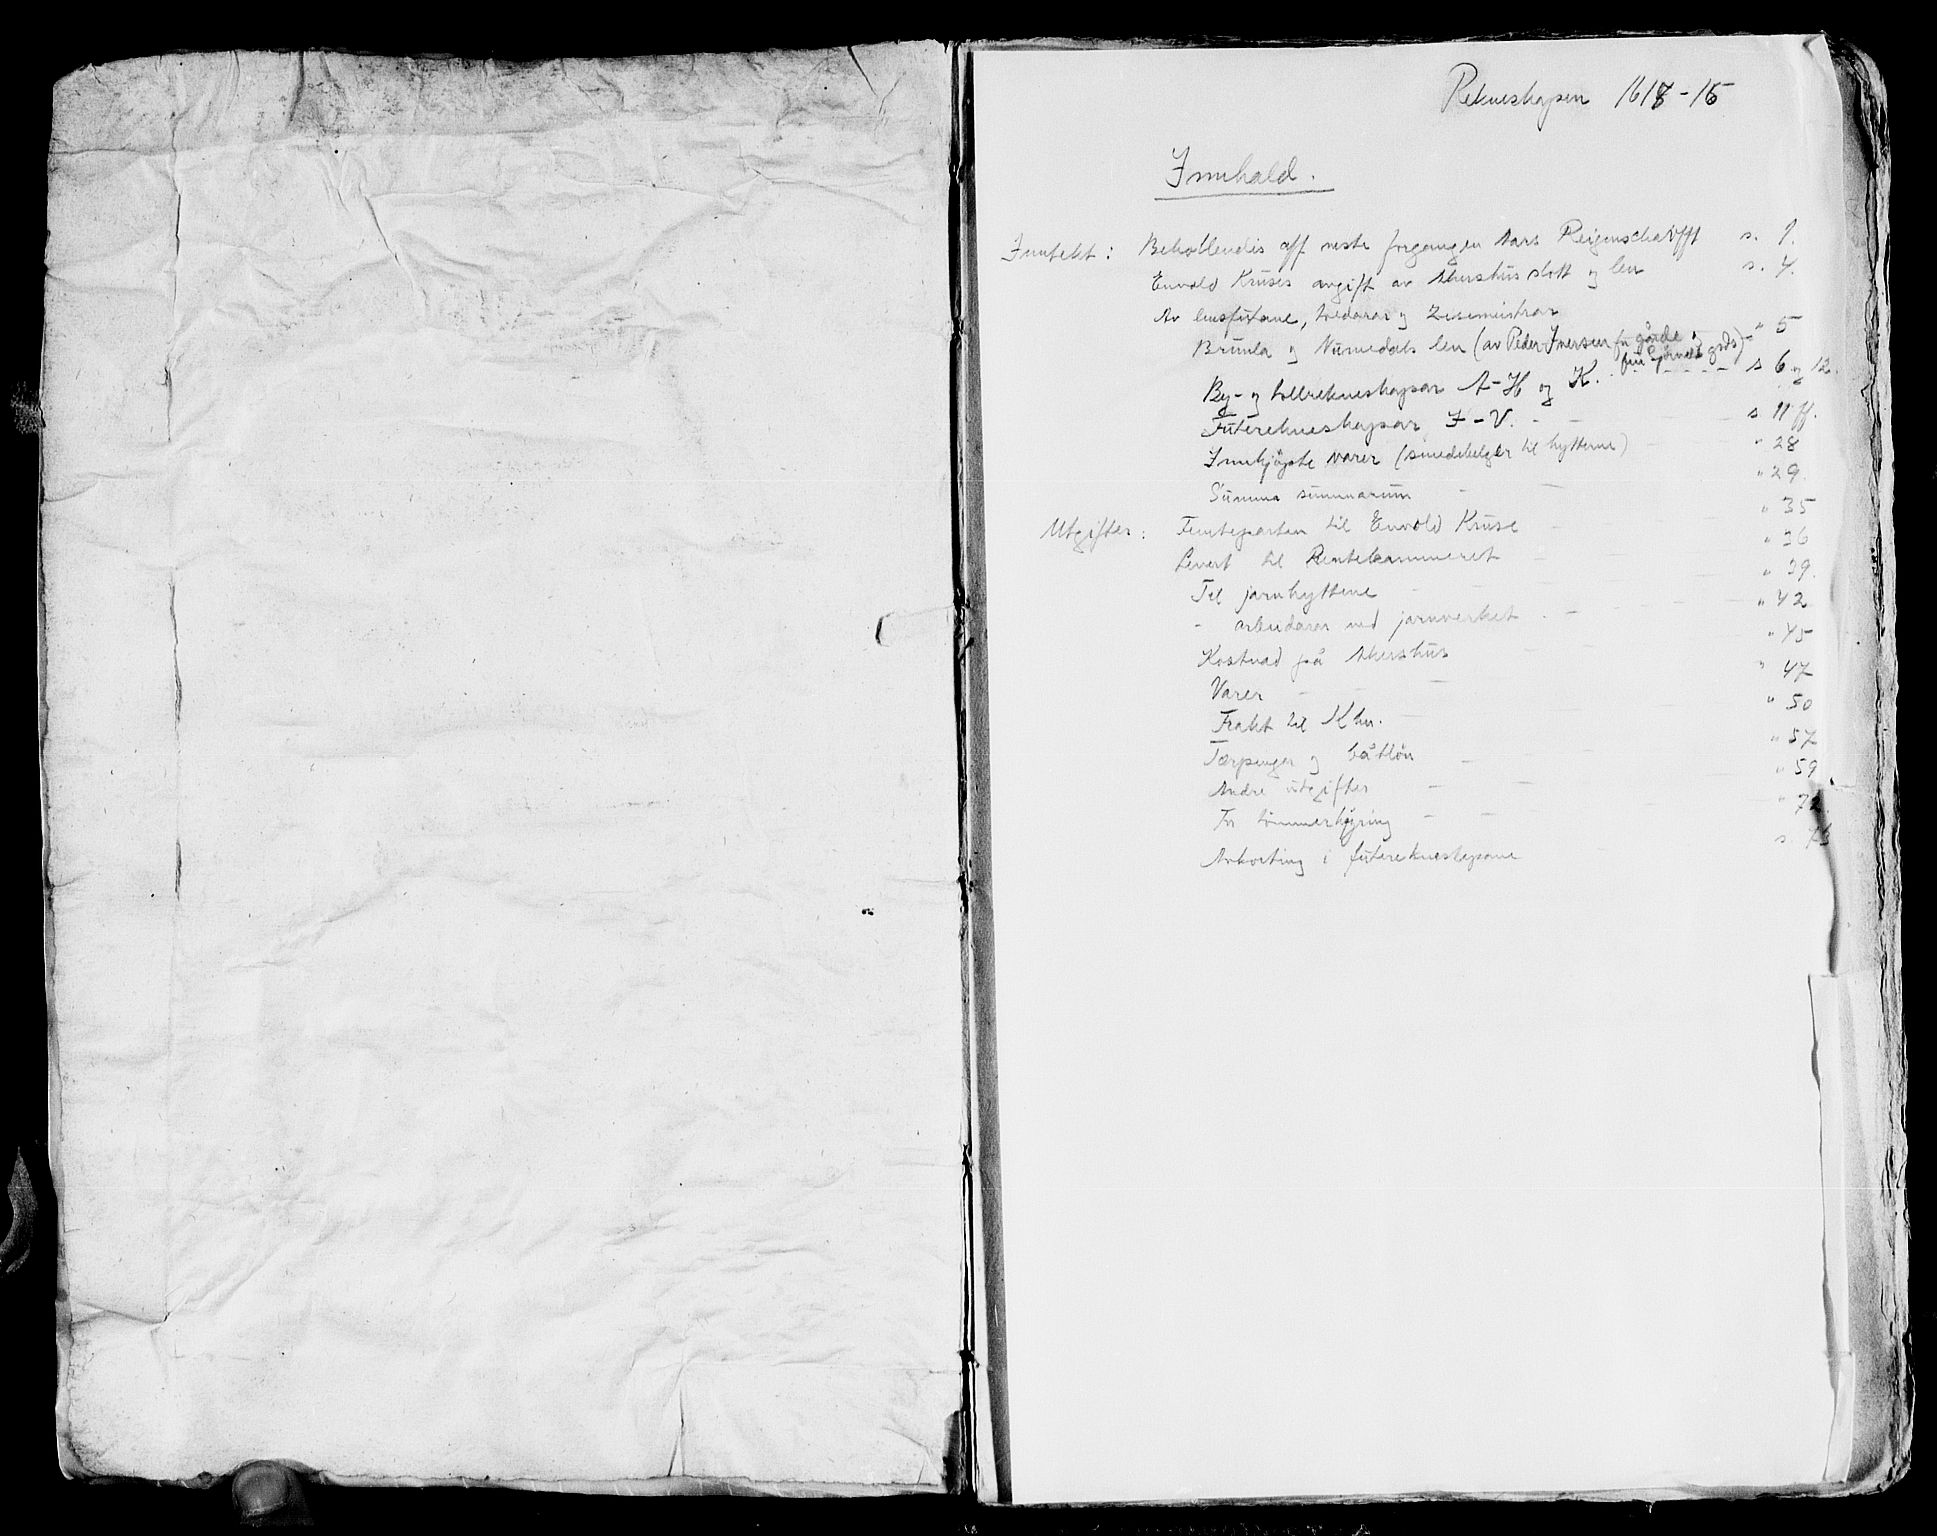 Rekneskapen 1618-16
Innhald.
Inntekt: Beholldendis aff neste forgangen Aars Reigenschaufft s. 1.
Envold Kruses avgift av Akershus slott og len s. 4.
Av lensfutane, tolarar og Zisemeistrar
Brunla og Numedals len (av Peder Iversen for gårde og " 5
frie gods)
By- og tollrekneskapar A-H og K. s 6 og 12.
Futerekneskapar I-V. s 11 ff.
Innkjøpte varer (smedebelger til hyttene) " 28
Summa summarum " 29.
Utgifter: Femteparten til Envold Kruse " 35
Levert til Rentekammeret " 36
Til jarnhyttene " 39.
- arbeidarar ved jarnverket " 42
Kostnad på Akershus " 45
Varer " 47
Frakt til Khn. " 50
Tærpenger og båtløn " 57
Andre utgifter " 59
For tømmerkjøring " 72
Avkorting i futerekneskapane s. 75